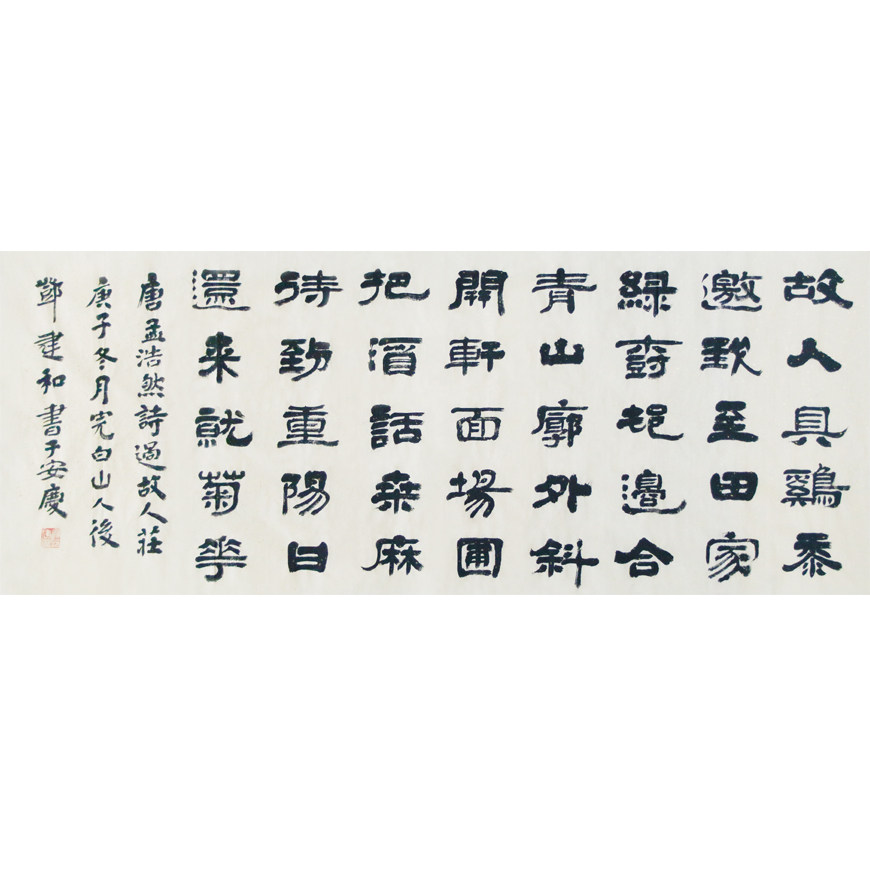 故人具鷄黍
邀我至田家
綠樹邨邊合
青山廓外斜
開軒面場圃
把酒話桑麻
待到重陽日
還来就菊華
唐孟浩然詩過故人莊
庚子冬月完白山人後
鄧建和書于安慶